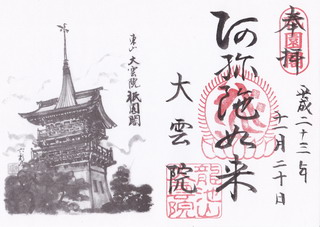 奉拝
平成二十三年
十一月二十日
阿弥陀如来
大雲院
龍池山
大雲院
東山 大雲院 祇園閣